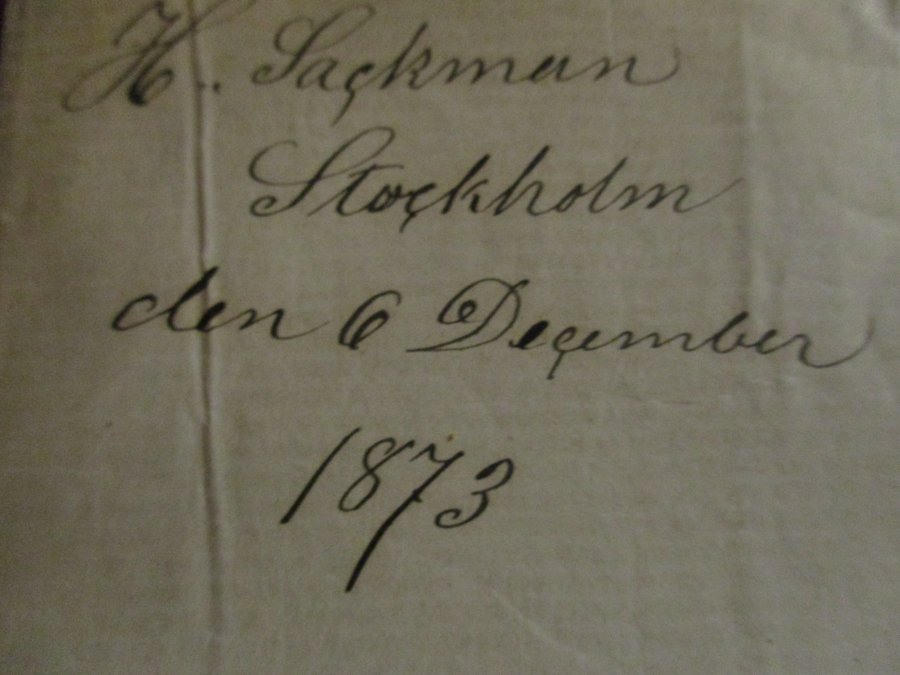 H. Sackman
Stockholm
den 6 December
1873